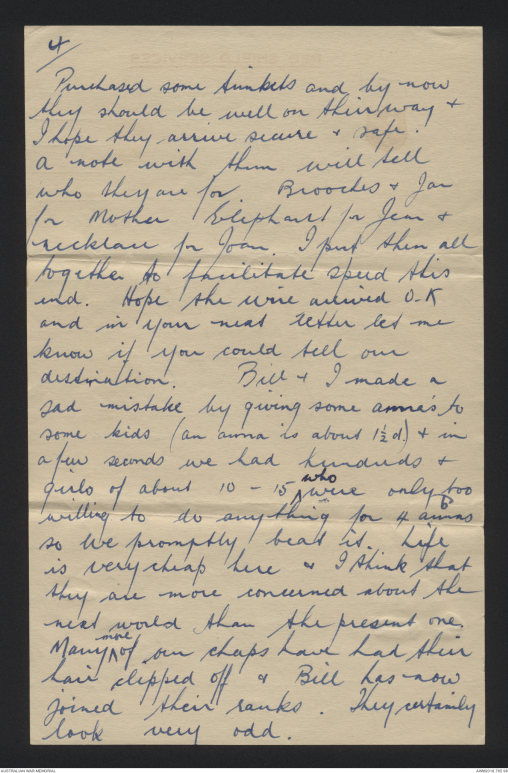 4
Purchased some trinkets and by now
they should be well on their way +
I hope they arrive secure + safe.
A note with them will tell
who they are for. Brooches + Jar
for Mother Elephant for Jean +
necklace for Joan. I put them all
together to facilitate speed this
end. Hope the wire arrived O.K
and in your next letter let me
know if you could tell our
destination. Bill + I made a
sad mistake by giving some anna's to
some kids (an anna is about 1½d.) + in
a few seconds we had hundreds +
girls of about 10 - 15 who were only too
willing to do anything for 4 annas
so we promptly beat it. Life
is very cheap here + I think that
they are more concerned about the
next world than the present one.
Many more of our chaps have had their
hair clipped off + Bill has now
joined their ranks. They certainly
look very odd.
AUSTRALIAN WAR MEMORIAL